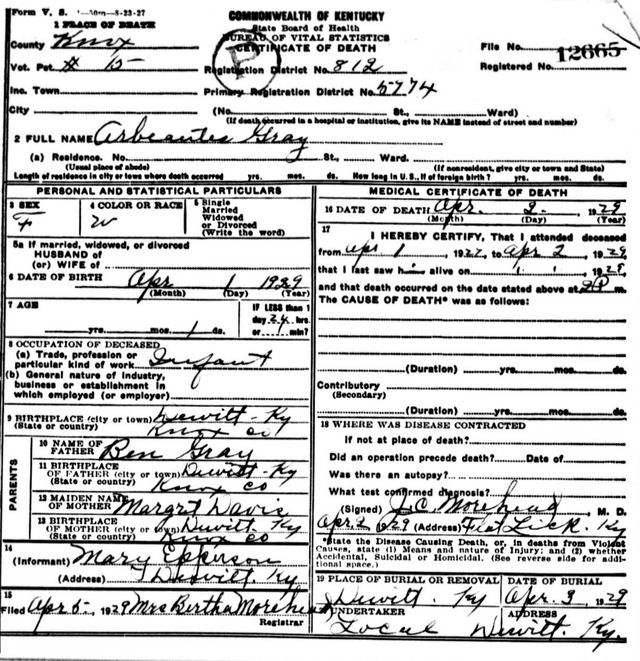 Form V. S. 1-50m-8-23-27
COMMONWEALTH OF KENTUCKY
State Board of Health
BUREAU OF VITAL STATISTICS
CERTIFICATE OF DEATH
1 PLACE OF DEATH
County Knox
File No. 12665
Vot. Pct. # 15
Registration District No. 812
Registered No.
Inc. Town
Primary Registration District No. 5774
City (No. St., Ward)
(If death occurred in a hospital or institution, give its NAME instead of street and number)
2 FULL NAME Arbeautes Gray
(a) Residence. No. St., Ward.
(Usual place of abode) (If nonresident, give city or town and State)
Length of residence in city or town where death occurred yrs. mos. ds. How long in U. S., if of foreign birth? yrs. mos. ds.
PERSONAL AND STATISTICAL PARTICULARS
3 SEX F
4 COLOR OR RACE W
5 Single
Married
Widowed
or Divorced
(Write the word)
5a If married, widowed, or divorced
HUSBAND of
(or) WIFE of
6 DATE OF BIRTH Apr 1 1929
(Month) (Day) (Year)
7 AGE
yrs. mos. 1 ds.
IF LESS than 1
day 24 hrs.
or min?
8 OCCUPATION OF DECEASED
(a) Trade, profession or
particular kind of work Infant
(b) General nature of industry,
business or establishment in
which employed (or employer)
9 BIRTHPLACE (city or town) Dewitt - Ky
(State or country) Knox Co
PARENTS
10 NAME OF
FATHER Ben Gray
11 BIRTHPLACE
OF FATHER (city or town) Dewitt - Ky
(State or country) Knox Co
12 MAIDEN NAME
OF MOTHER Margrt Davis
13 BIRTHPLACE
OF MOTHER (city or town) Dewitt. Ky
(State or country) Knox Co
14
(Informant) Mary
(Address) Dewitt. Ky
15
Filed Apr 5-, 1929 Mrs Bertha Morehead
Registrar
MEDICAL CERTIFICATE OF DEATH
16 DATE OF DEATH Apr. 2. 1929
(Month) (Day) (Year)
17
I HEREBY CERTIFY, That I attended deceased
from Apr 1, 192 , to Apr 2, 1929
that I last saw h alive on , 192 ,
and that death occurred on the date stated above at 2 P m.
The CAUSE OF DEATH* was as follows:
(Duration) yrs. mos. ds.
Contributory
(Secondary)
(Duration) yrs. mos. ds.
18 WHERE WAS DISEASE CONTRACTED
If not at place of death?
Did an operation precede death? Date of
Was there an autopsy?
What test confirmed diagnosis?
(Signed) J. C. Morehead, M. D.
Apr 2, 1929 (Address) Flat Lick. Ky
*State the Disease Causing Death, or, in deaths from Violent
Causes, state (1) Means and nature of Injury; and (2) whether
Accidental, Suicidal or Homicidal. (See reverse side for addi-
tional space.)
19 PLACE OF BURIAL OR REMOVAL
Dewitt. Ky
DATE OF BURIAL
Apr. 3, 1929
UNDERTAKER
Local
ADDRESS
Dewitt. Ky.